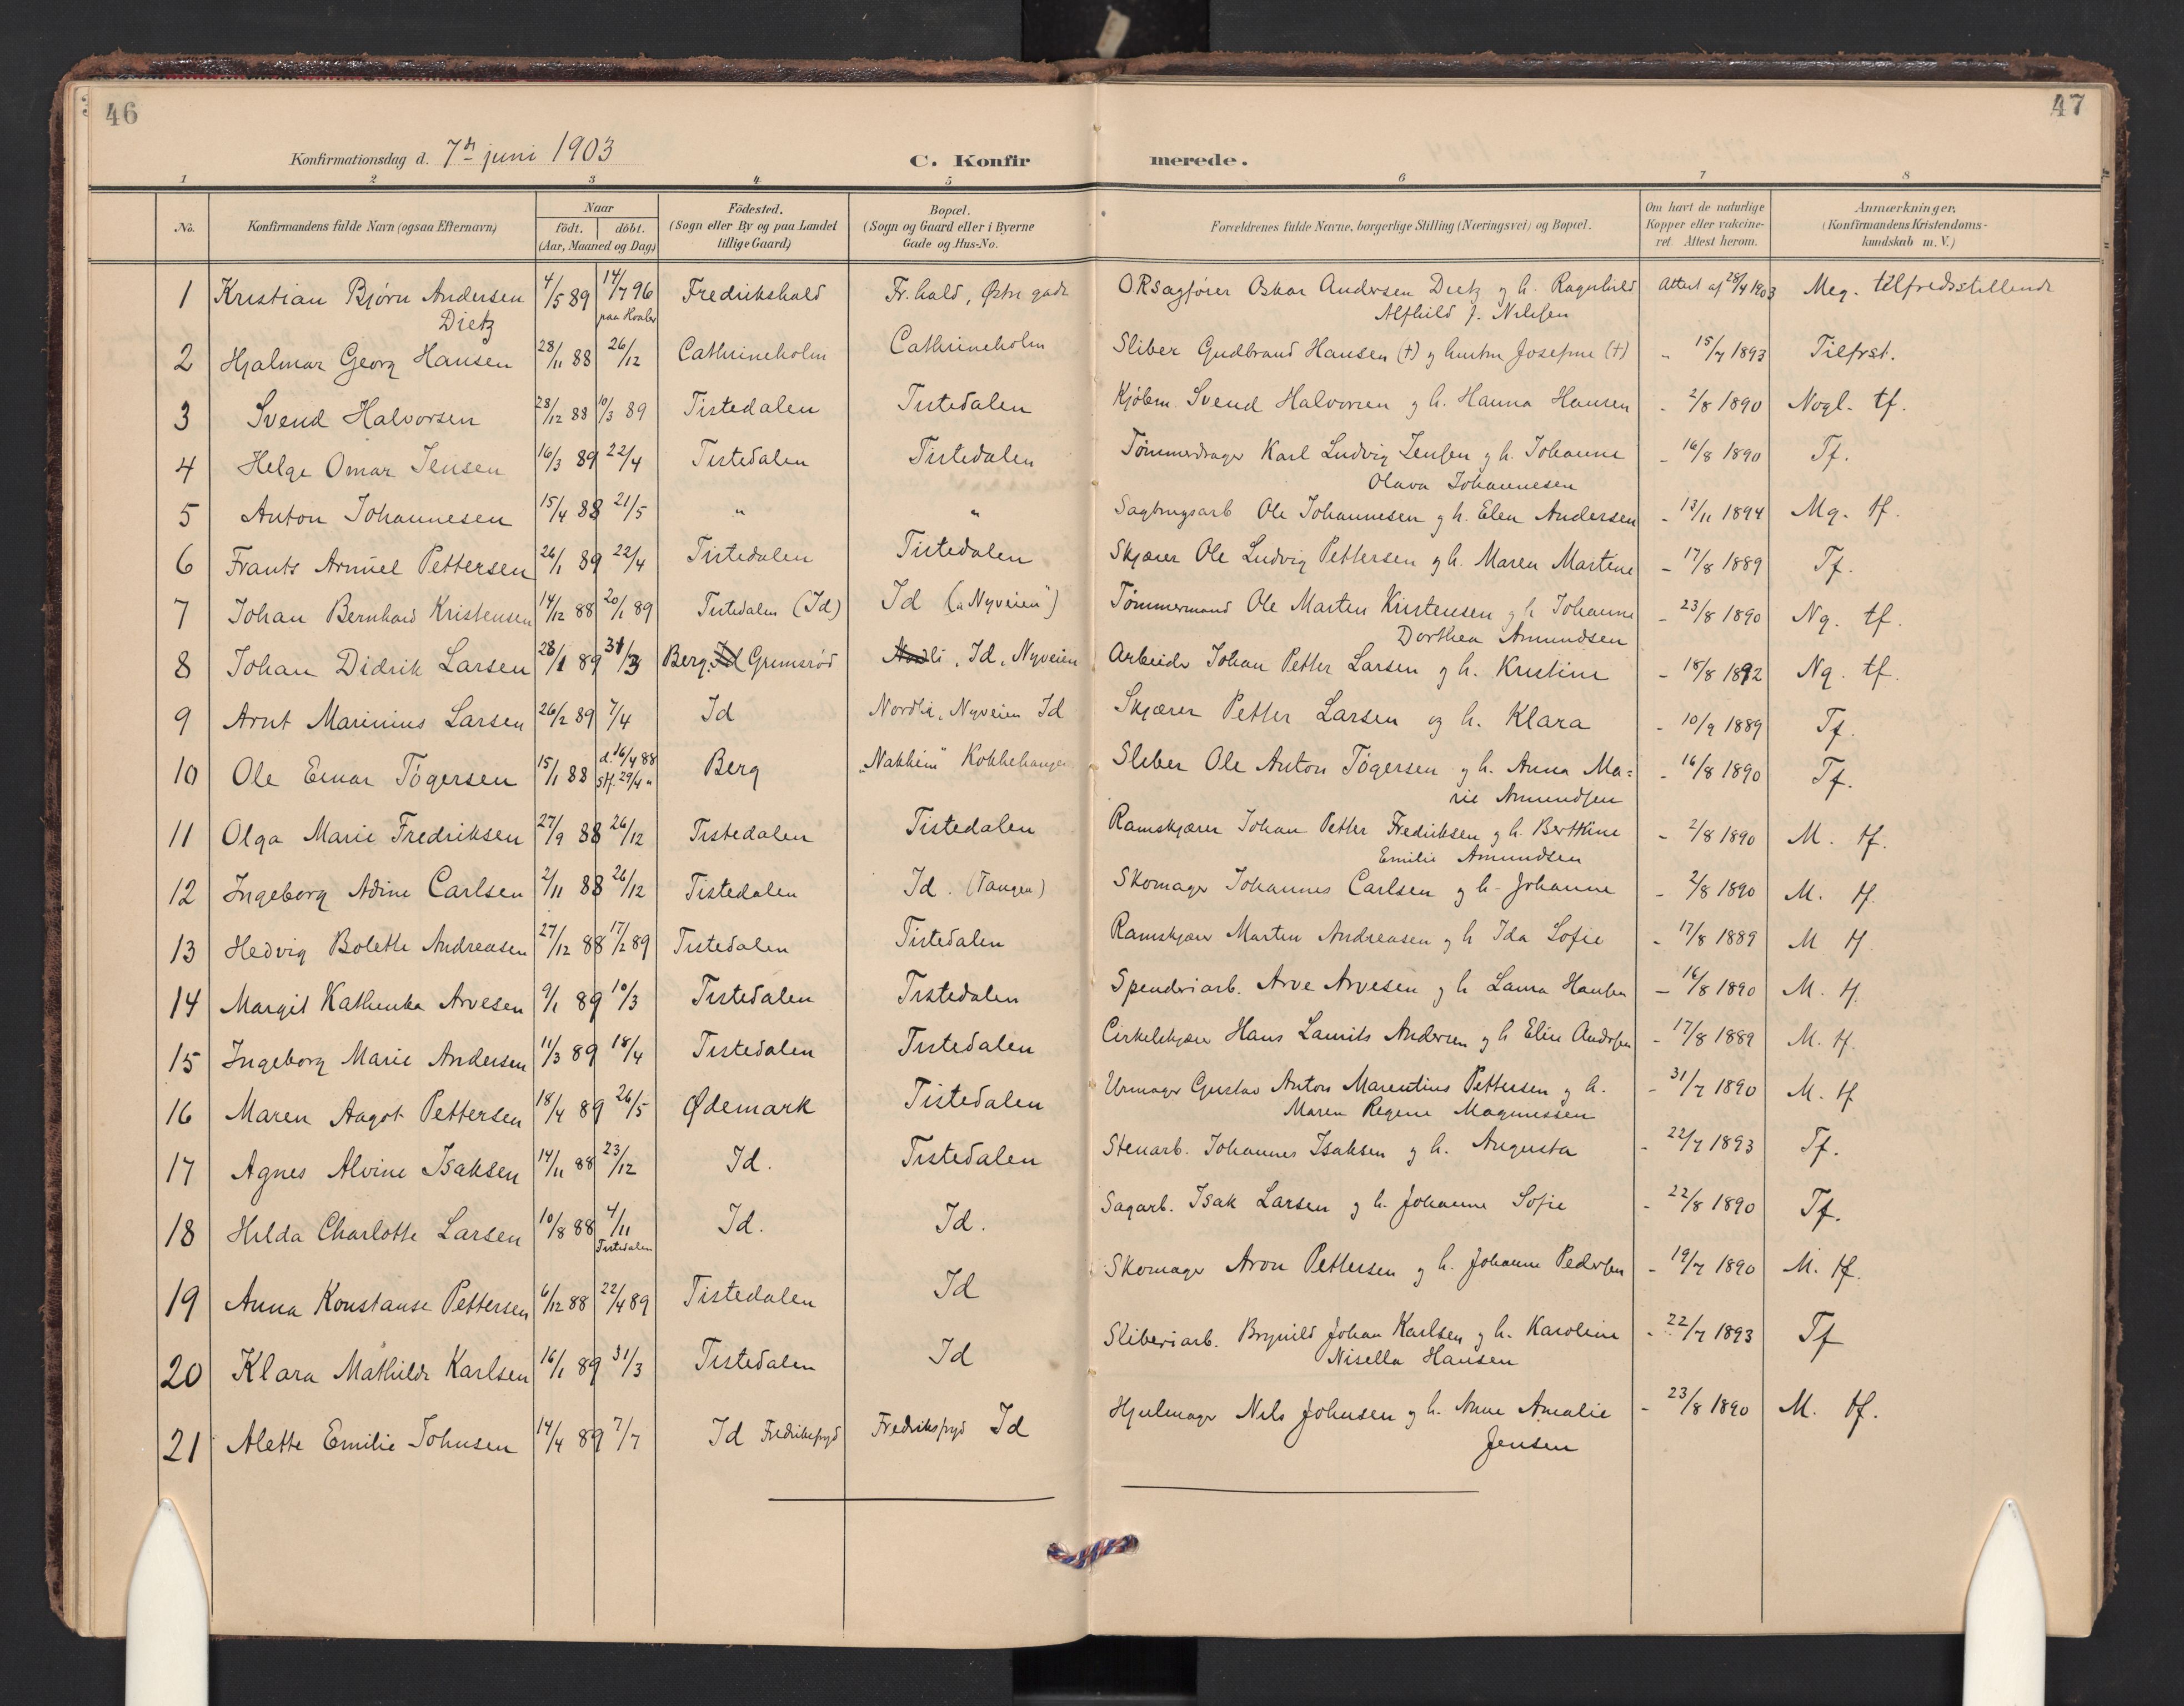 46
47
Konfirmationsdag d. 7de juni 1903
C. Konfir merede.
1 2 3 4 5 6 7 8
No. Konfirmandens fulde Navn (ogsaa Efternavn) Naar födt. döbt. (Aar, Maaned og Dag) Födested. (Sogn eller By og paa Landet tillige Gaard) Bopæl. (Sogn og Gaard eller i Byerne Gade og Hus-No. Forældrenes fulde Navne, borgerlige Stilling (Næringsvei) og Bopæl. Om havt de naturlige Kopper eller vakcineret Attest herom. Anmærkninger, (Konfirmandens Kristendomskundskab m. V.)
1 Kristian Bjørn Andersen 4/5 89 14/7 96 Fredrikshald Fr.hald, Østre gade ORsagfører Oskar Andersen Dietz og h. Ragnhild Attest af 28/4 1903 Meg. tilfredsstillende
Dietz paa Hvaler Alfhild J. Nilsen
2 Hjalmar Georg Hansen 28/11 88 26/12 Cathrineholm Cathrineholm Sliber Gudbrand Hansen (+) og hustru Josefine (+) " 15/7 1893 Tilfrst.
3 Svend Halvorsen 28/12 88 10/3 89 Tistedalen Tistedalen Kjøbm. Svend Halvorsen og h. Hanna Hansen - 2/8 1890 Nogl. tf.
4 Helge Omar Jensen 16/3 89 22/4 Tistedalen Tistedalen Tømmerdrager Karl Ludvig Jensen og h. Johanne - 16/8 1890 Tf.
Olava Johannesen
5 Anton Johannesen 15/4 88 21/5 " " Sagbrugsarb Ole Johannesen og h. Elen Andersen - 13/11 1894 Mg. tf.
6 Frants Armuel Pettersen 26/1 89 22/4 Tistedalen Tistedalen Skjærer Ole Ludvig Pettersen og h. Maren Martine - 17/8 1889 Tf.
7 Johan Bernhard Kristensen 14/12 88 20/1 89 Tistedalen (Id) Id ("Nyveien") Tømmermand Ole Martin Kristensen og h Johanne - 23/8 1890 Ng. tf.
Dorthea Amundsen
8 Johan Didrik Larsen 28/1 89 31/3 Berg. Id Grimsrød Nordli, Id, Nyveien Arbeider Johan Petter Larsen og h. Kristine - 18/8 1892 Ng. tf.
9 Arnt Marinius Larsen 26/2 89 7/4 Id Nordli, Nyveien Id Skjærer Petter Larsen og h. Klara - 10/9 1889 Tf.
10 Ole Einar Tögersen 15/1 88 d. 16/4 88 Stf. 29/4 " Berg "Nakkeim" Kokkehaugen Sliber Ole Anton Tögersen og h. Anna Ma= - 16/8 1890 Tf.
rie Amundsen
11 Olga Marie Fredriksen 27/9 88 26/12 Tistedalen Tistedalen Ramskjærer Johan Petter Fredriksen og h. Berthine - 2/8 1890 M. tf.
Emilie Amundsen
12 Ingeborg Adine Carlsen 2/11 88 26/12 Tistedalen Id. (Tangen) Skomager Johannes Carlsen og h. Johanne - 2/8 1890 M. tf.
13 Hedvig Bolette Andreasen 27/12 88 17/2 89 Tistedalen Tistedalen Ramskjærer Martin Andreasen og h Ida Sofie - 17/8 1889 M tf.
14 Margit Kathinka Arvesen 9/1 89 10/3 Tistedalen Tistedalen Spinderiarb. Arve Arvesen og h Laura Hansen - 16/8 1890 M. tf.
15 Ingeborg Marie Andersen 11/3 89 18/4 Tistedalen Tistedalen Cirkelskjærer Hans Laurits Andersen og h Elise Andersen - 17/8 1889 M. tf.
16 Maren Aagot Pettersen 18/4 89 26/5 Ødemark Tistedalen Urmager Gustav Anton Marentius Pettersen og h. - 31/7 1890 M. tf
Maren Regine Magnussen
17 Agnes Alvine Isaksen 14/11 88 23/12 Id. Tistedalen Stenarb. Johannes Isaksen og h. Augusta - 22/7 1893 Tf.
18 Hilda Charlotte Larsen 10/8 88 4/11 Id. Id. Sagarb. Isak Larsen og h. Johanne Sofie - 22/8 1890 Tf.
Tistedalen
19 Anna Konstanse Pettersen 6/12 88 22/4 89 Tistedalen Id Skomager Aron Pettersen og h. Johanne Pedersen - 19/7 1890 M. tf.
20 Klara Mathilde Karlsen 16/1 89 31/3 Tistedalen Id Sliberiarb. Brynild Johan Karlsen og h. Karoline - 22/7 1893 Tf
Nisella Hansen
21 Alette Emilie Johnsen 14/4 89 7/7 Id Fredriksfryd Fredriksfryd Id Hjulmager Nils Johnsen og h. Anne Amalie - 23/8 1890 M. tf.
Jensen